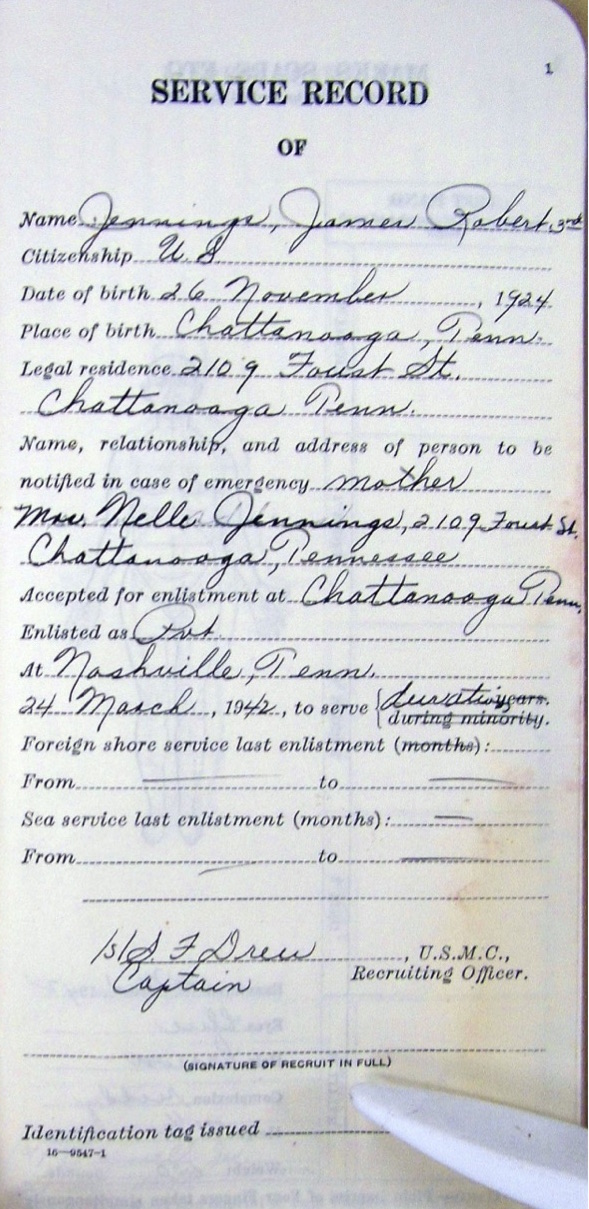 1
SERVICE RECORD
OF
Name Jennings, James Robert 3rd
Citizenship U S
Date of birth 26 November, 1924
Place of birth Chattanooga, Tenn.
Legal residence 2109 Foust St.
Chattanooga Tenn.
Name, relationship, and address of person to be
notified in case of emergency mother
Mrs. Nelle Jennings, 2109 Foust St.
Chattanooga, Tennessee
Accepted for enlistment at Chattanooga Tenn.
Enlisted as Pvt
At Nashville, Tenn.
24 March, 1942, to serve { duration years.
during minority.
Foreign shore service last enlistment (months):
From — to —
Sea service last enlistment (months): —
From — to —
/s/ S F Drew, U.S.M.C.,
Captain Recruiting Officer.
(SIGNATURE OF RECRUIT IN FULL)
Identification tag issued
16—9547-1